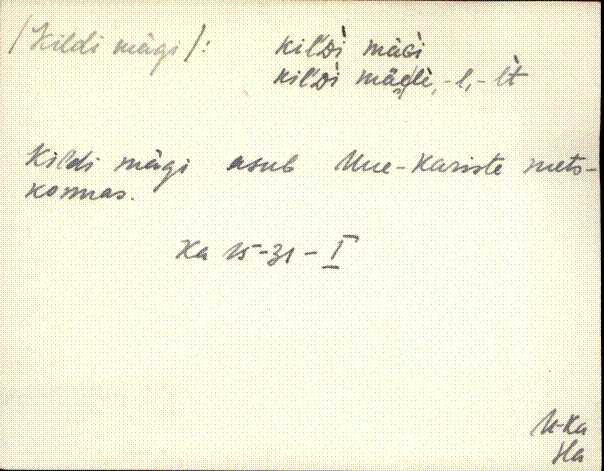 /Kildi mägi/: kil'Dì mäGì
kil'Dì mäele, -l, -lt
Kildi mägi asub Uue-Kariste mets-
konnas.
Ka 15-31-I
U-Ka
Ha